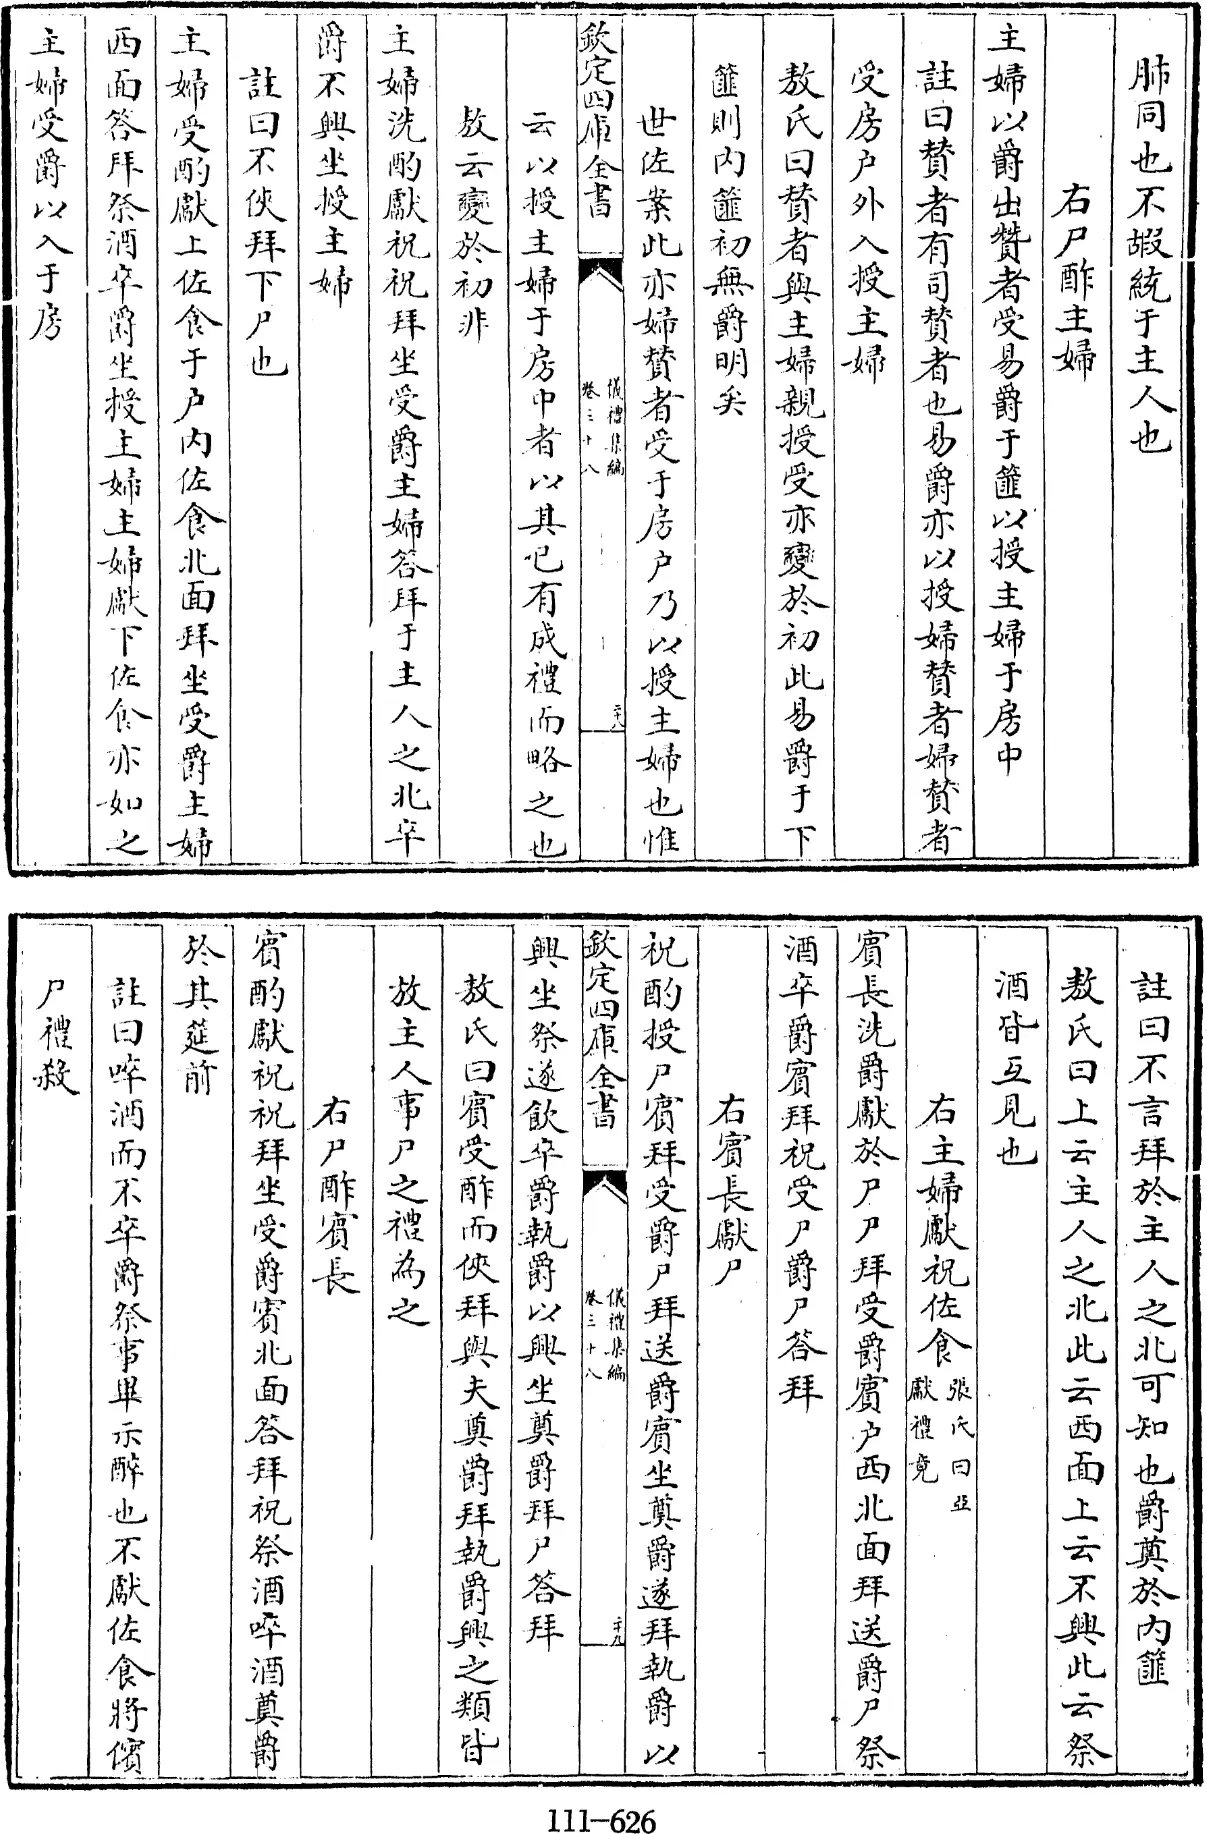 肺同也不嘏統于主人也
右尸酢主婦
主婦以爵出贊者受易爵于篚以授主婦于房中
註曰贊者有司贊者也易爵亦以授婦贊者婦贊者
受房户外入授主婦
敖氏曰贊者與主婦親授受亦變於初此易爵于下
篚則内篚初無爵明矣
世佐案此亦婦贊者受于房户乃以授主婦也惟
欽定四庫全書
儀禮集編
卷三十八
二十八
云以授主婦于房中者以其已有成禮而略之也
敖云變於初非
主婦洗酌獻祝祝拜坐受爵主婦答拜于主人之北卒
爵不興坐授主婦
註曰不俠拜下尸也
主婦受酌獻上佐食于户内佐食北面拜坐受爵主婦
西面答拜祭酒卒爵坐授主婦主婦獻下佐食亦如之
主婦受爵以入于房
註曰不言拜於主人之北可知也爵奠於内篚
敖氏曰上云主人之北此云西面上云不興此云祭
酒皆互見也
右主婦獻祝佐食
張氏曰亞
獻禮竟
賓長洗爵獻於尸尸拜受爵賓户西北面拜送爵尸祭
酒卒爵賓拜祝受尸爵尸答拜
右賓長獻尸
祝酌授尸賓拜受爵尸拜送爵賓坐奠爵遂拜執爵以
欽定四庫全書
儀禮集編
卷三十八
二十九
興坐祭遂飲卒爵執爵以興坐奠爵拜尸答拜
敖氏曰賓受酢而俠拜與夫奠爵拜執爵興之類皆
放主人事尸之禮為之
右尸酢賓長
賓酌獻祝祝拜坐受爵賓北面答拜祝祭酒啐酒奠爵
於其筵前
註曰啐酒而不卒爵祭事畢示醉也不獻佐食將儐
尸禮殺
111-626